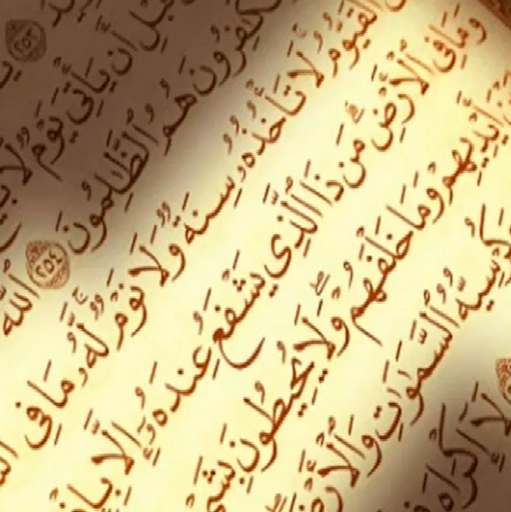 قبل أن يأتي يوم لا
ٱلكفرون هم ٱلظلمون ٢٥٤ ٱلله
ٱلقيوم لا تأخذه سنة ولا نوم له ما في
وما في ٱلأرض من ذا ٱلذي يشفع عنده إلا بإذ
أيديهم وما خلفهم ولا يحيطون بشي
كرسيه ٱلسموت وٱلأرض
لا إكراه